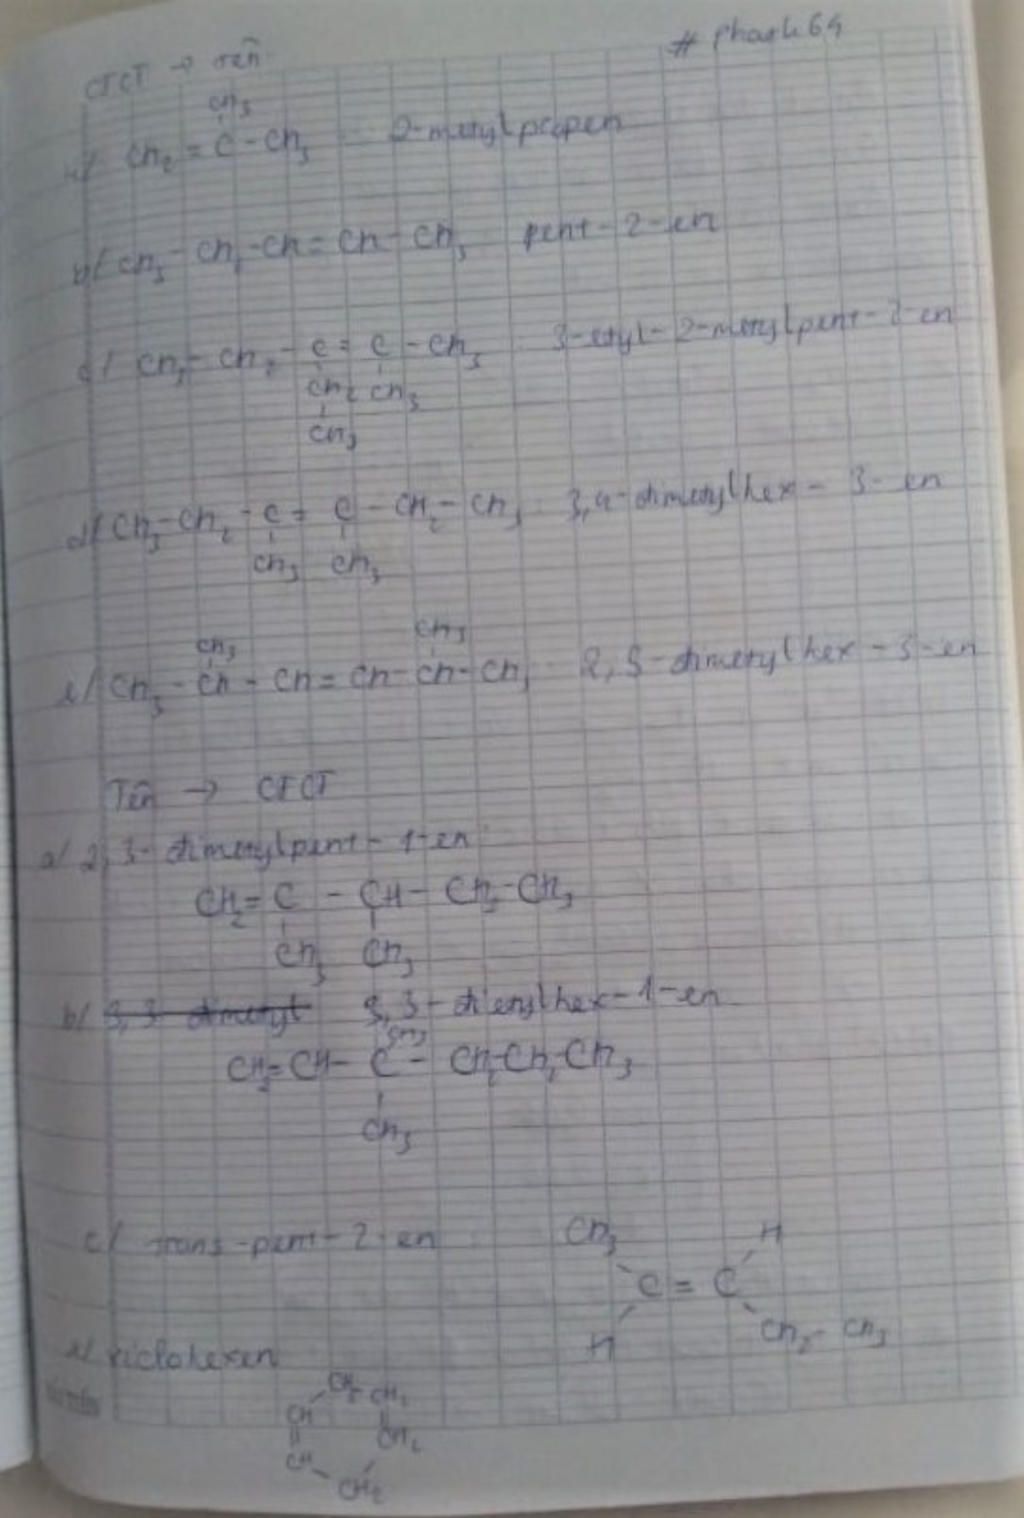 # phach64
CTCT → Tên
CH3
a/ CH2 = C - CH3 2-metylpropen
b/ CH3 - CH2 - CH = CH - CH3 pent-2-en
c/ CH3 - CH2 - C = C - CH3 3-etyl-2-metylpent-2-en
CH2 CH3
CH3
d/ CH3 - CH2 - C = C - CH2 - CH3 3,4-dimetylhex-3-en
CH3 CH3
CH3 CH3
e/ CH3 - CH - CH = CH - CH - CH3 2,5-dimetylhex-3-en
Tên → CTCT
a/ 2,3-dimetylpent-1-en
CH2 = C - CH - CH2 - CH3
CH3 CH3
b/ 3,3-dimetyl 3,3-dietylhex-1-en
CH3
CH2 = CH - C - CH2 - CH2 - CH3
CH3
c/ trans-pent-2-en
CH3 H
C = C
H CH2 - CH3
xiclohexen
CH2 CH2
CH CH2
CH CH2